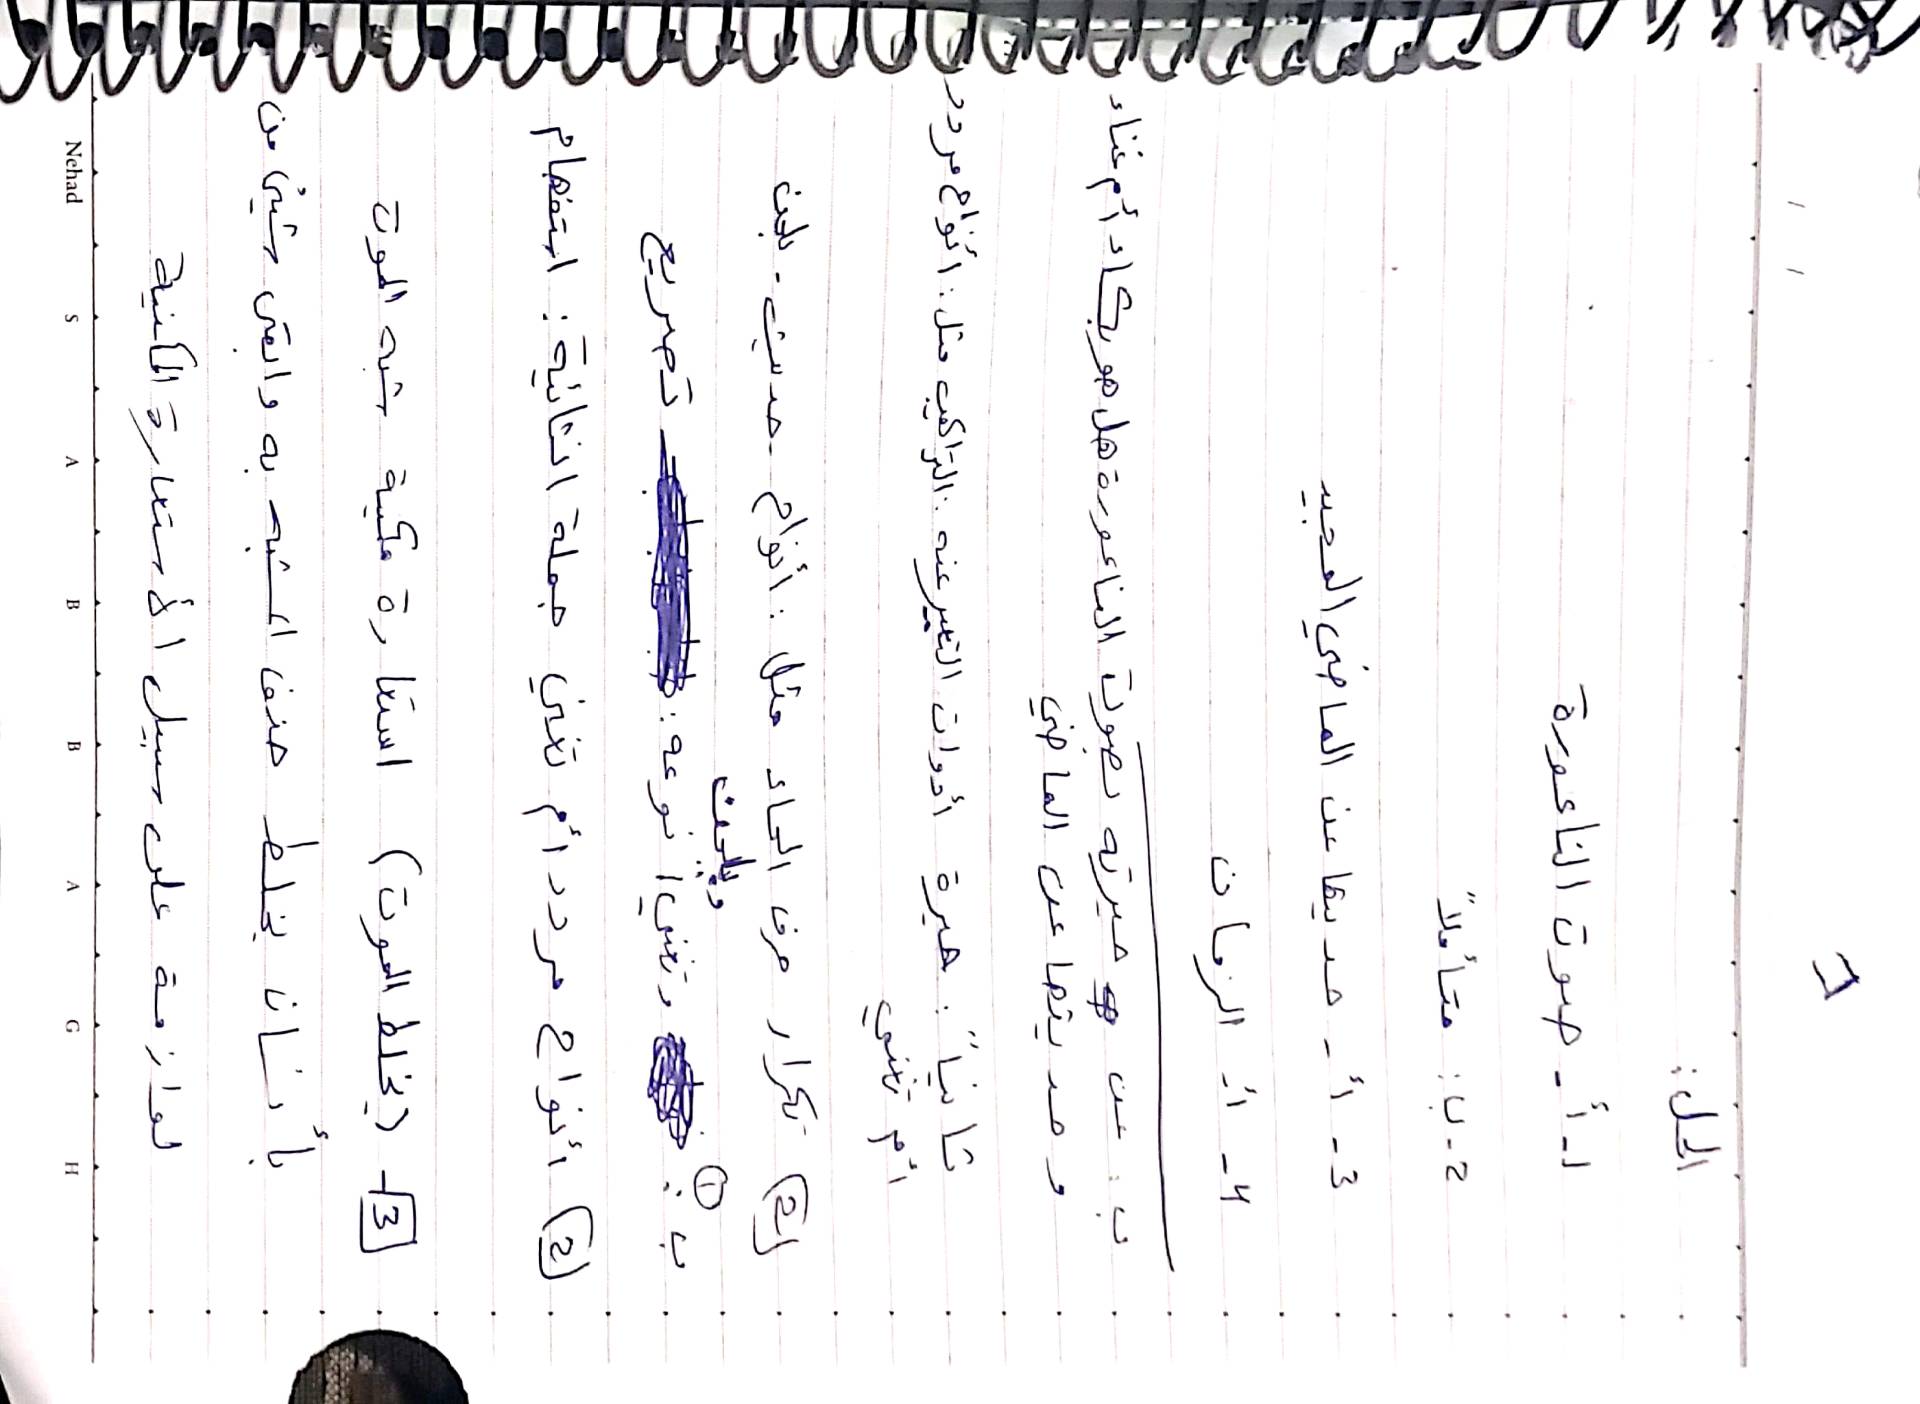 الحل:
1- أ- صوت الناعورة
2- ب: متأملاً
3- أ- حديثها عن الماضي المجيد
4- أ: الزمان
ب: عن حيرته بصوت الناعورة هل هو بكاء أم غناء
وحديثها عن الماضي
ثانياً: حيرة أدوات التعبير عنه: التراكيب مثل: أنواح مردد
أم تغني
2 تكرار حرف الحاء مثل: أنواح - حديث -
ب: 1 وتغني نوعه: تصريع
2 أنواح مردد أم تغني جملة انشائية: استفهام
3- (يغلط الموت) استعارة مكنية شبه الموت
بأنسان يغلط حذف المشبه به وابقى شيئ من
لوازمه على سبيل الأستعارة المكنية
Nehad S A B B A G H